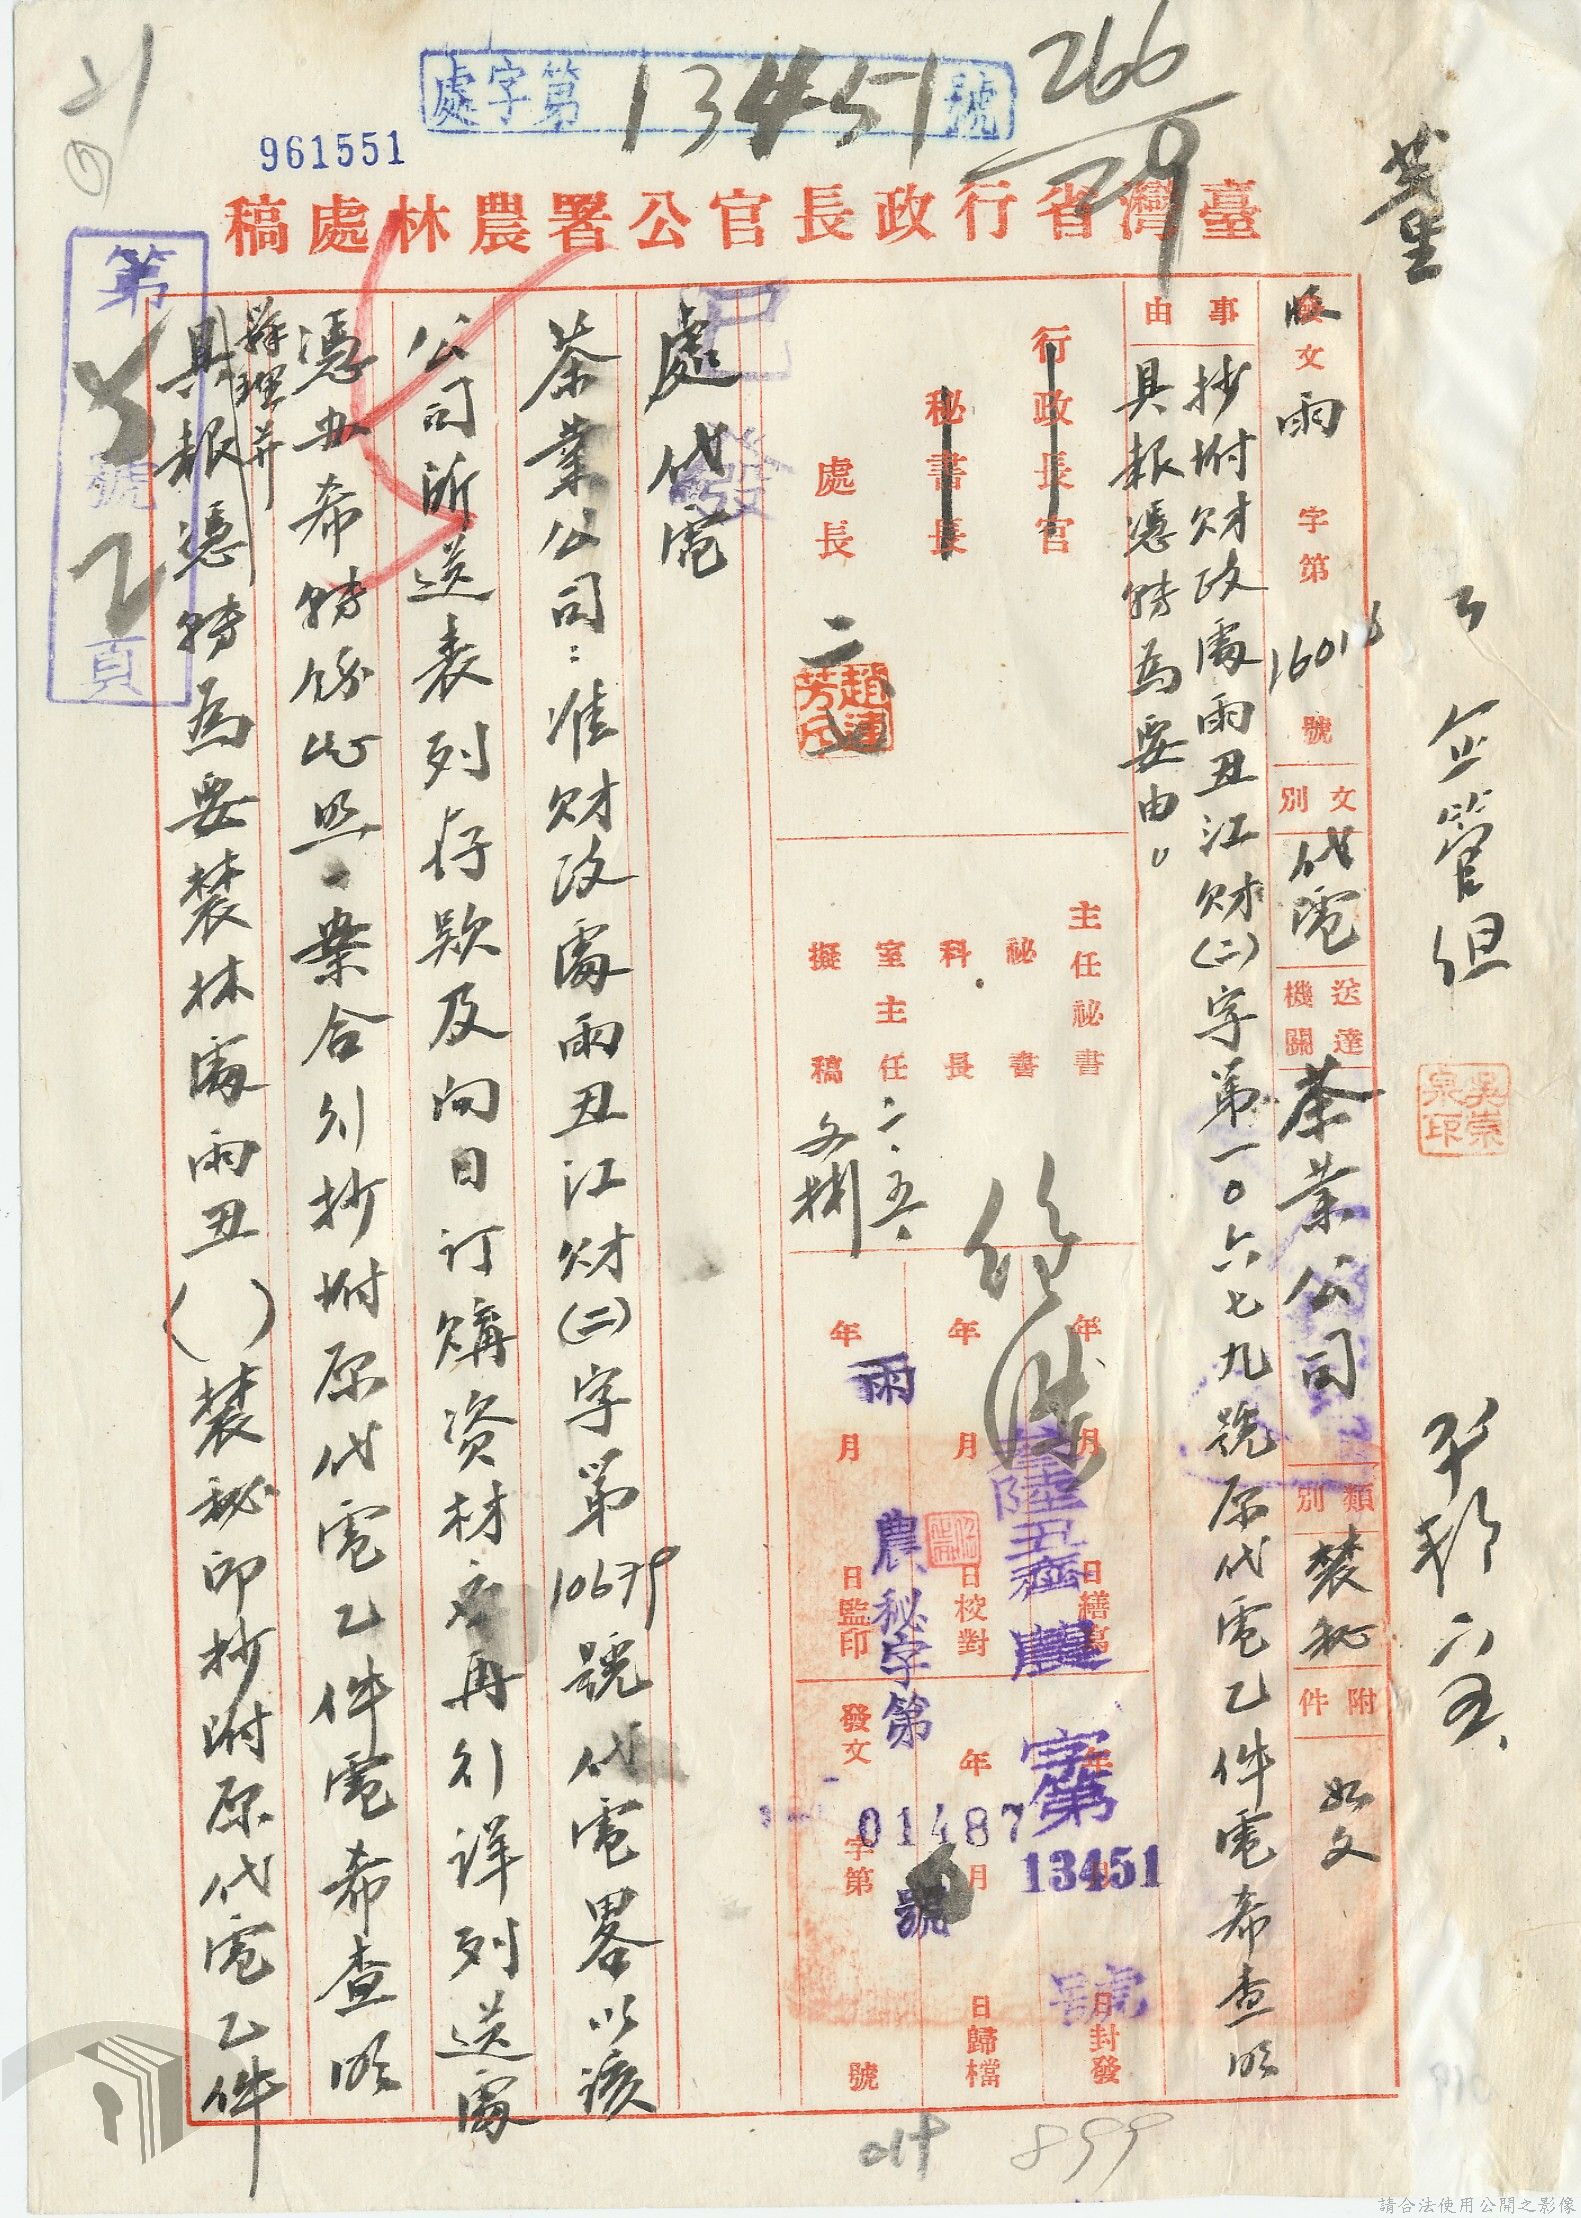 處字第13451號
266
29
961551
臺灣省行政長官公署農林處稿
第
號
2
頁
企管組
六五、
發文
雨
字第
16013
號
文別
代電
送達機關
茶業公司
類別
農秘
附件
如文
事由
抄附財政處雨丑江財(二)字第一〇六七九號原代電乙件電希查明
具報憑轉為要由。
行政長官
秘書長
處長
主任秘書
秘書
科長
室主任
二、五、
擬稿
年月日繕寫
年月日校對
年月日監印
年月日封發
年月日歸檔
發文字第號
雨
農秘字第
01487
號
農
字第
13451
號
已發
處代電
茶業公司：准財政處雨丑江財(二)字第10679號代電畧以該
公司所送表列存款及向日订購资材应再行詳列送處
憑办希轉飭办照一案合行抄附原代電乙件電希查明
辦理并
具報憑轉為要農林處雨丑（　）農秘印抄附原代電乙件
019
899
請合法使用公開之影像